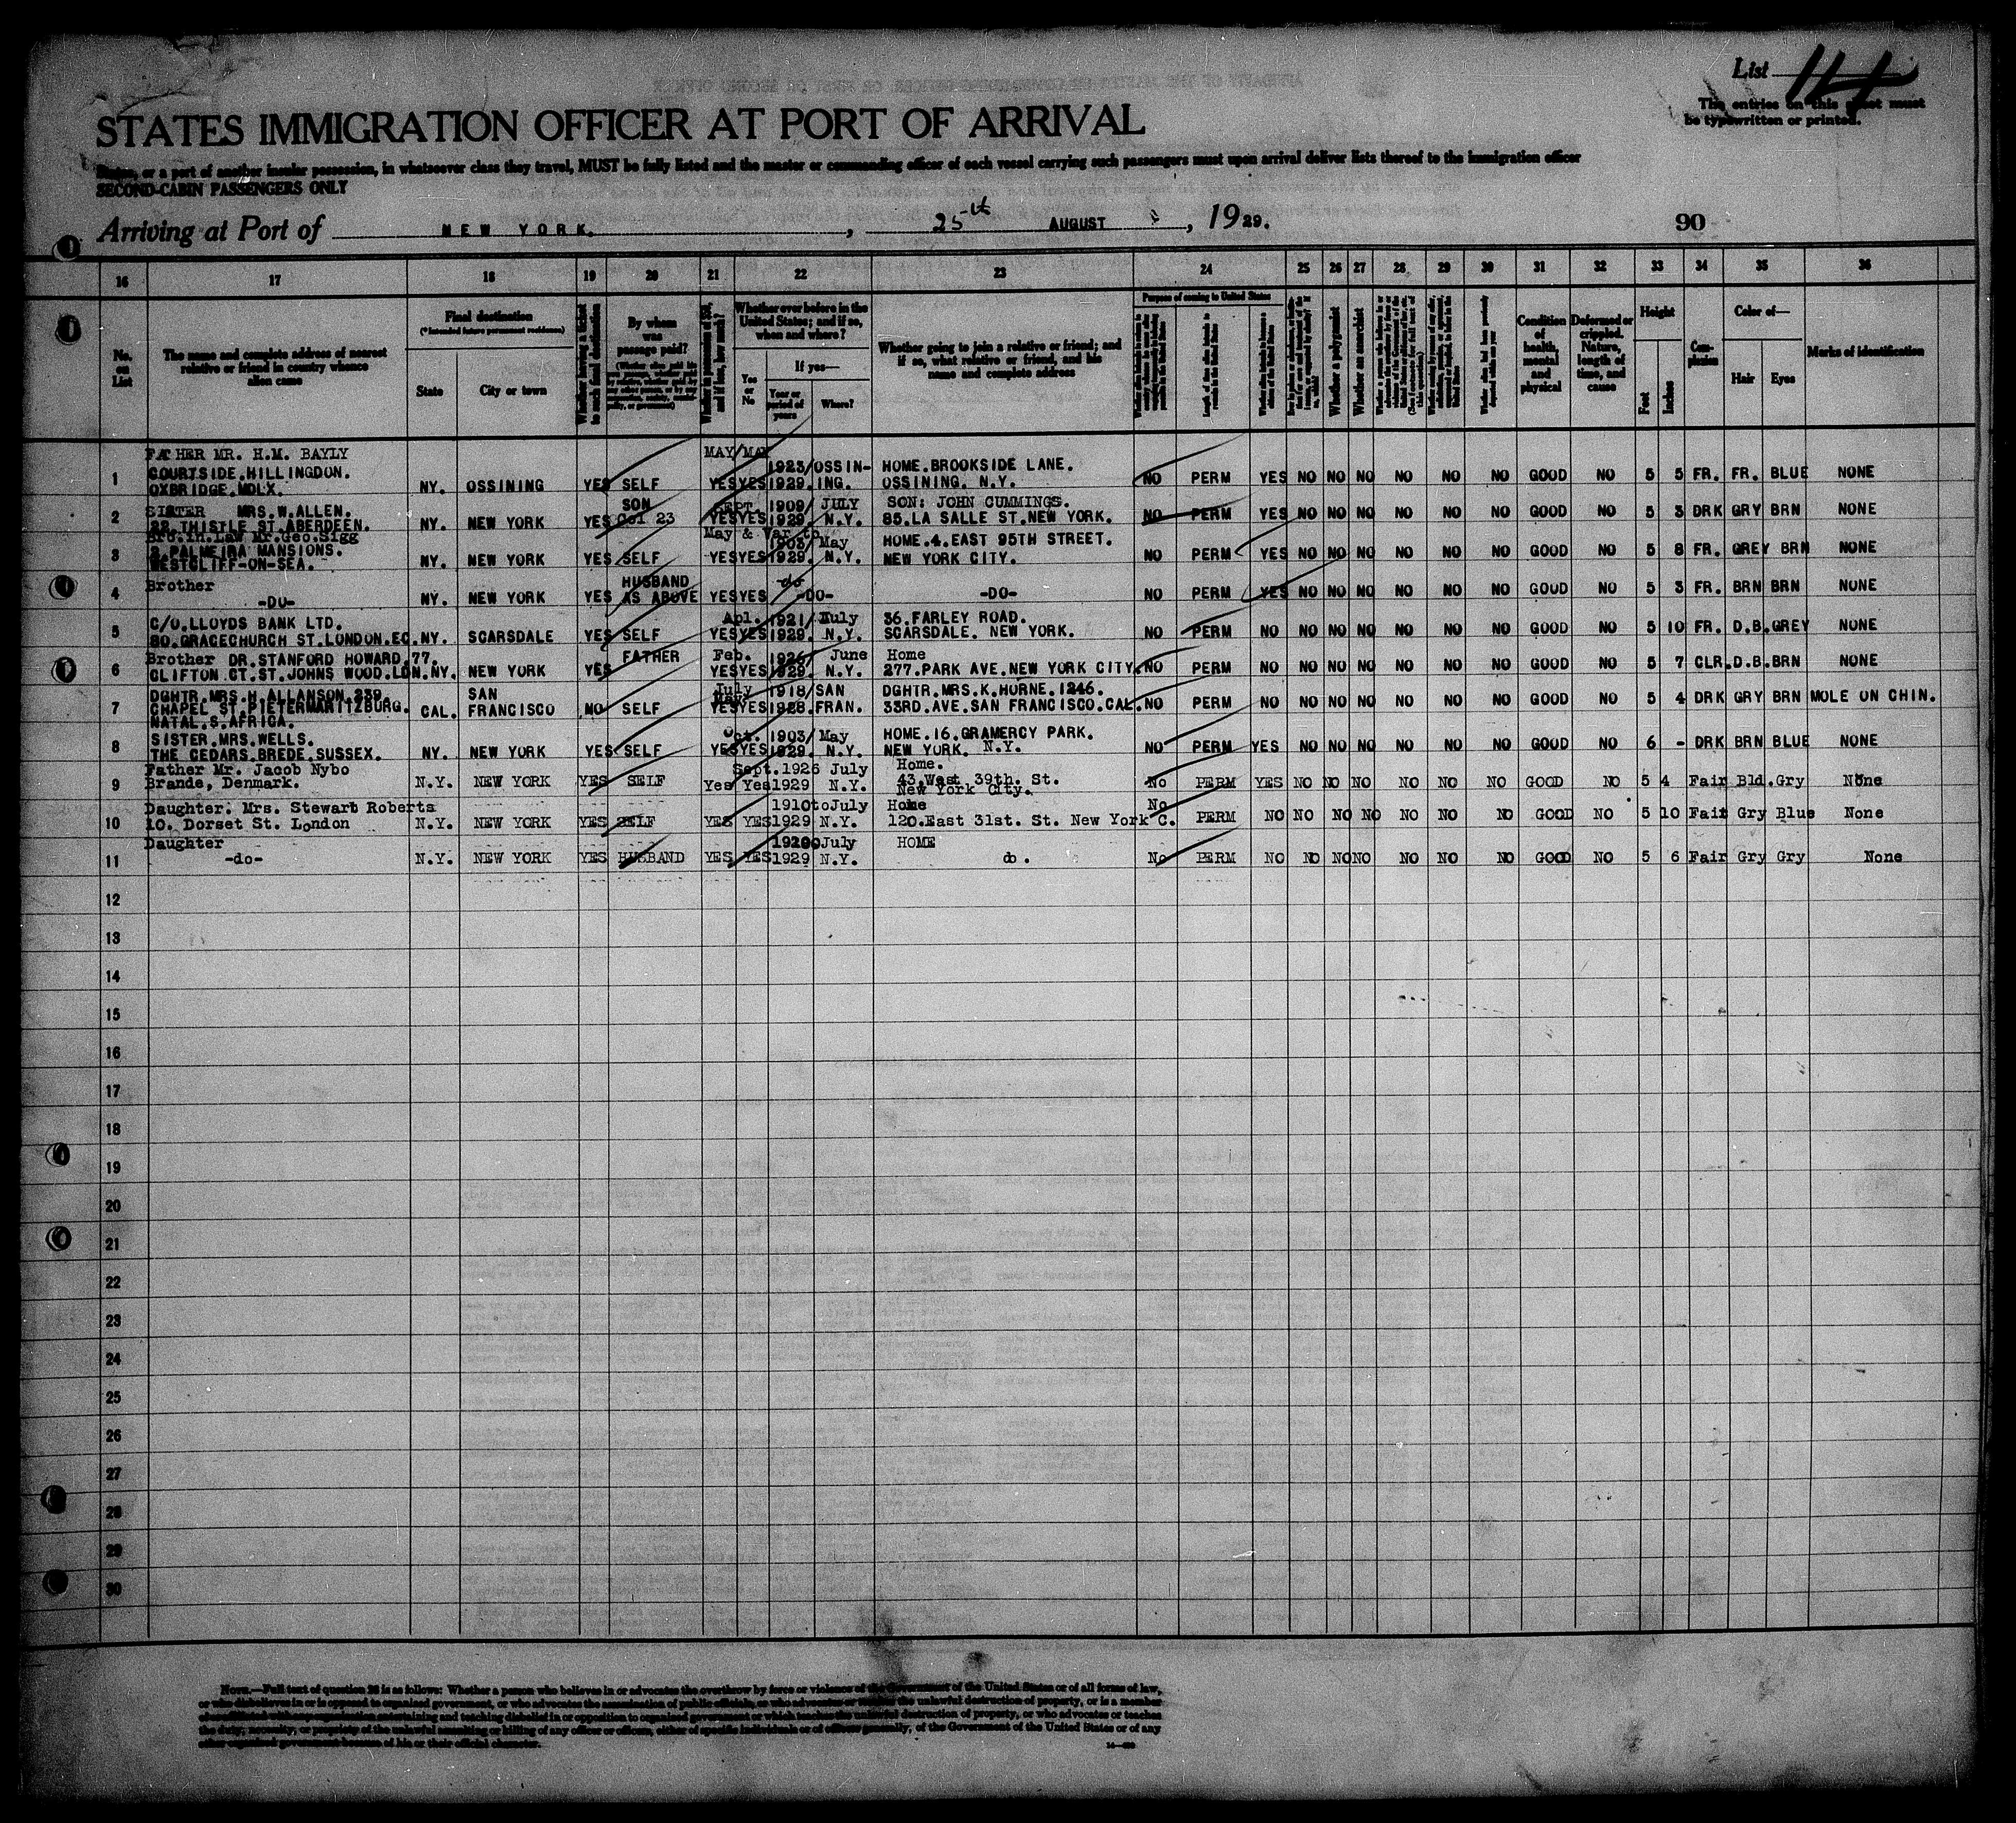 List 14
The entries on this sheet must
be typewritten or printed.
STATES IMMIGRATION OFFICER AT PORT OF ARRIVAL
States, or a port of another insular possession, in whatsoever class they travel, MUST be fully listed and the master or commanding officer of each vessel carrying such passengers must upon arrival deliver lists thereof to the immigration officer
SECOND-CABIN PASSENGERS ONLY
Arriving at Port of NEW YORK. , 25th AUGUST , 1929. 90
16 17 18 19 20 21 22 23 24 25 26 27 28 29 30 31 32 33 34 35 36
No. on List
The name and complete address of nearest relative or friend in country whence alien came
Final destination
(*Intended future permanent residence)
State
City or town
Whether having a ticket to such final destination
By whom was passage paid?
Whether in possession of $50, and if less, how much?
Whether ever before in the United States; and if so, when and where?
Yes or No
If yes—
Year or period of years
Where?
Whether going to join a relative or friend; and if so, what relative or friend, and his name and complete address
Purpose of coming to United States
Whether a polygamist
Whether an anarchist
Condition of health, mental and physical
Deformed or crippled. Nature, length of time, and cause
Height
Feet
Inches
Complexion
Color of—
Hair
Eyes
Marks of identification
FATHER MR. H.M. BAYLY MAY/MAY
COURTSIDE.HILLINGDON. 1923/OSSIN- HOME.BROOKSIDE LANE.
1 OXBRIDGE.MDLX. NY. OSSINING YES SELF YES YES 1929. ING. OSSINING. N.Y. NO PERM YES NO NO NO NO NO NO GOOD NO 5 5 FR. FR. BLUE NONE
SISTER MRS.W.ALLEN. SON SEPT. 1909/ JULY SON: JOHN CUMMINGS.
2 22.THISTLE ST.ABERDEEN. NY. NEW YORK YES YES YES 1929. N.Y. 85.LA SALLE ST.NEW YORK. NO PERM YES NO NO NO NO NO NO GOOD NO 5 3 DRK GRY BRN NONE
Bro.in.Law Mr.Geo.Sigg May & Var to
PALMEIRA MANSIONS. 1903/ May HOME.4.EAST 95TH STREET.
3 WESTCLIFF-ON-SEA. NY. NEW YORK YES SELF YES YES 1929. N.Y. NEW YORK CITY. NO PERM YES NO NO NO NO NO NO GOOD NO 5 8 FR. GREY BRN NONE
Brother HUSBAND -do-
4 -DO- NY. NEW YORK YES AS ABOVE YES YES -DO- -DO- NO PERM YES NO NO NO NO NO NO GOOD NO 5 3 FR. BRN BRN NONE
C/O.LLOYDS BANK LTD. Apl. 1921/ July 36.FARLEY ROAD.
5 80.GRACECHURCH ST.LONDON.EC. NY. SCARSDALE YES SELF YES YES 1929. N.Y. SCARSDALE. NEW YORK. NO PERM NO NO NO NO NO NO NO GOOD NO 5 10 FR. D.B. GREY NONE
Brother DR.STANFORD HOWARD.77. FATHER Feb. 1926/ June Home
6 CLIFTON.CT.ST.JOHNS WOOD.LDN. NY. NEW YORK YES YES YES 1929. N.Y. 277.PARK AVE.NEW YORK CITY. NO PERM NO NO NO NO NO NO NO GOOD NO 5 7 CLR. D.B. BRN NONE
DGHTR.MRS.H.ALLANSON.239. SAN July 1918/SAN DGHTR.MRS.K.HORNE.1246.
7 CHAPEL ST.PIETERMARITZBURG. CAL. FRANCISCO NO SELF YES YES 1928. FRAN. 33RD.AVE.SAN FRANCISCO.CAL. NO PERM NO NO NO NO NO NO NO GOOD NO 5 4 DRK GRY BRN MOLE ON CHIN.
NATAL.S.AFRICA.
SISTER.MRS.WELLS. Oct. 1903/ May HOME.16.GRAMERCY PARK.
8 THE CEDARS.BREDE.SUSSEX. NY. NEW YORK YES SELF YES YES 1929. N.Y. NEW YORK. N.Y. NO PERM YES NO NO NO NO NO NO GOOD NO 6 - DRK BRN BLUE NONE
Father Mr. Jacob Nybo Sept.1926 July Home.
9 Brande, Denmark. N.Y. NEW YORK YES SELF Yes Yes 1929 N.Y. 43.West 39th. St. No PERM YES NO NO NO NO NO NO GOOD NO 5 4 Fair Bld. Gry None
New York City.
Daughter. Mrs. Stewart Roberts 1910 to July Home No
10 10. Dorset St. London N.Y. NEW YORK YES SELF YES YES 1929 N.Y. 120.East 31st. St. New York C. PERM NO NO NO NO NO NO NO GOOD NO 5 10 Fair Gry Blue None
Daughter July HOME
11 -do- N.Y. NEW YORK YES HUSBAND YES YES 1929 N.Y. do. No PERM NO NO NO NO NO NO NO GOOD NO 5 6 Fair Gry Gry None
12
13
14
15
16
17
18
19
20
21
22
23
24
25
26
27
28
29
30
NOTE.—Full text of question 28 is as follows: Whether a person who believes in or advocates the overthrow by force or violence of the Government of the United States or of all forms of law,
or who disbelieves in or is opposed to organized government, or who advocates the assassination of public officials, or who advocates or teaches the unlawful destruction of property, or is a member
of or affiliated with any organization entertaining and teaching disbelief in or opposition to organized government or which teaches the unlawful destruction of property, or who advocates or teaches
the duty, necessity, or propriety of the unlawful assaulting or killing of any officer or officers, either of specific individuals or of officers generally, of the Government of the United States or of any
other organized government because of his or their official character.